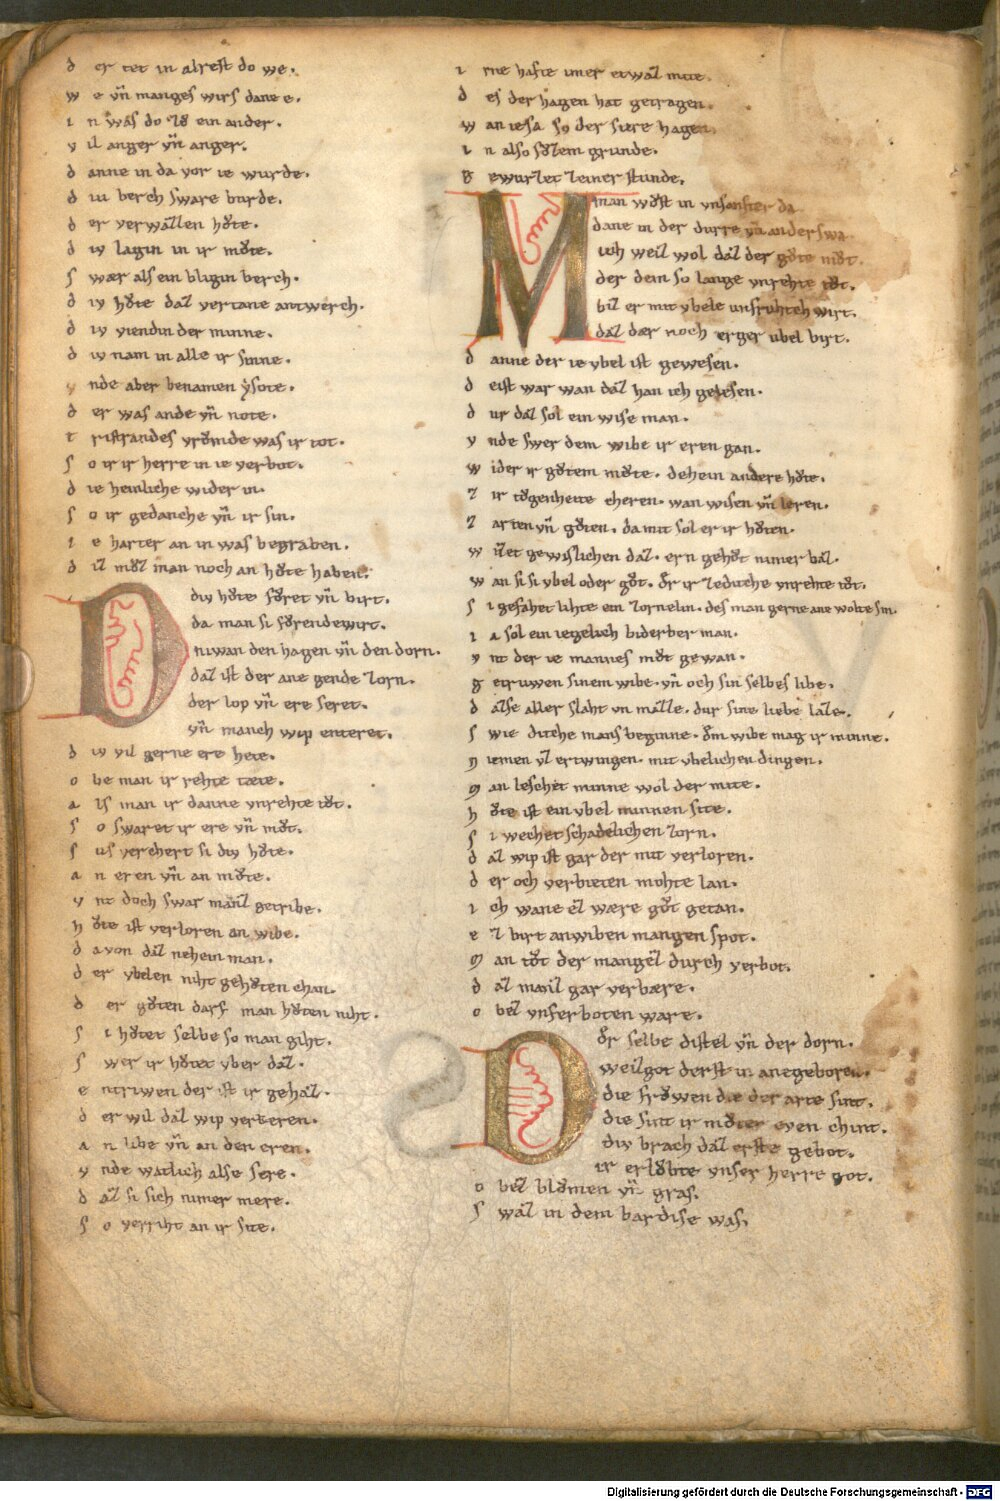 d er tet in alrest do we.
w e vn̄ manges wirs dane e.
i n was do zů ein ander.
v il anger vn̄ anger.
d anne in da vor ie wurde.
d iu berch sware burde.
d er verwazen hůte.
d iv lagin in ir můte.
s wær als ein bligin berch.
d iv hůte daz vertane antwerch.
d iv viendin der minne.
d iv nam in alle ir sinne.
v nde aber benamen ysote.
d er was ande vn̄ note.
t ristandes vrŏmde was ir tot.
s o ir ir herre in ie verbot.
d ie heinliche wider in.
s o ir gedanche vn̄ ir sin.
i e harter an in was begraben.
d iz můz man noch an hůte haben.
Diu hůte fůret vn̄ birt.
da man si fůrende wirt.
niwan den hagen vn̄ den dorn.
daz ist der ane gende zorn.
der lop vn̄ ere seret.
vn̄ manch wip enteret.
d iv vil gerne ere hete.
o be man ir rehte tæte.
a ls man ir danne vnrehte tůt.
s o swaret ir ere vn̄ můt.
s us verchert si div hůte.
a n eren vn̄ an můte.
v nt doch swar manz getribe.
h ůte ist verloren an wibe.
d a von daz nehein man.
d er vbelen niht gehůten chan.
d er gůten darf man hůten niht.
s i hůtet selbe so man giht.
s wer ir hůtet vber daz.
e ntriwen der ist ir gehaz.
d er wil daz wip verkeren.
a n libe vn̄ an den eren.
v nde wætlich alse sere.
d az si sich nimer mere.
s o verriht an ir site.
i rne hafte imer etwaz mite.
d es der hagen hat getragen.
w an iesa so der sure hagen.
i n also sůzem grunde.
g ewurzet zeiner stunde.
Man wůst in vnsanfter da
dane in der durre vn̄ anderswa.
ich weiz wol daz der gůte můt.
der dem so lange vnrehte tůt.
biz er mit vbele unfruhtich wirt.
daz dær noch erger ubel birt.
d anne der ie vbel ist gewesen.
d eist war wan daz han ich gelesen.
d ur daz sol ein wise man.
v nde swer dem wibe ir eren gan.
w ider ir gůtem můte. dehein andere hůte.
z ir tŏgenheite cheren. wan wisen vn̄ leren.
z arten vn̄ gůten. da mit sol er ir hůten.
w izzet gewislichen daz. ern gehůt nimer baz.
w an si si vbel oder gůt. der ir zediche vnrehte tůt.
s i gefahet lihte ein zornelin. des man gerne ane wolte sin.
i a sol ein iegelich biderber man.
v nt der ie mannes můt gewan.
g etruwen sinem wibe. vn̄ och sin selbes libe.
d azse aller slaht un mazze. dur sine liebe lazze.
s wie diche mans beginne. dem wibe mag ir minne.
n iemen vz ertwingen. mit vbelichen dingen.
m an leschet minne wol der mite.
h ůte ist ein vbel minnen site.
s i wechet schadelichen zorn.
d az wip ist gar der mit verloren.
d er och verbieten mohte lan.
i ch wane ez wære gůt getan.
e z birt an wiben mangen spot.
m an tůt der mangez durch verbot.
d az manz gar verbære.
o bez vnferboten ware.
Der selbe distel vn̄ der dorn.
weizgot derst in anegeboren.
die frŏwen die der arte sint.
die sint ir můter even chint.
div brach daz erste gebot.
ir erlŏbte vnser herre got.
o bez blůmen vn̄ gras.
s waz in dem bardise was.
Digitalisierung gefördert durch die Deutsche Forschungsgemeinschaft - DFG